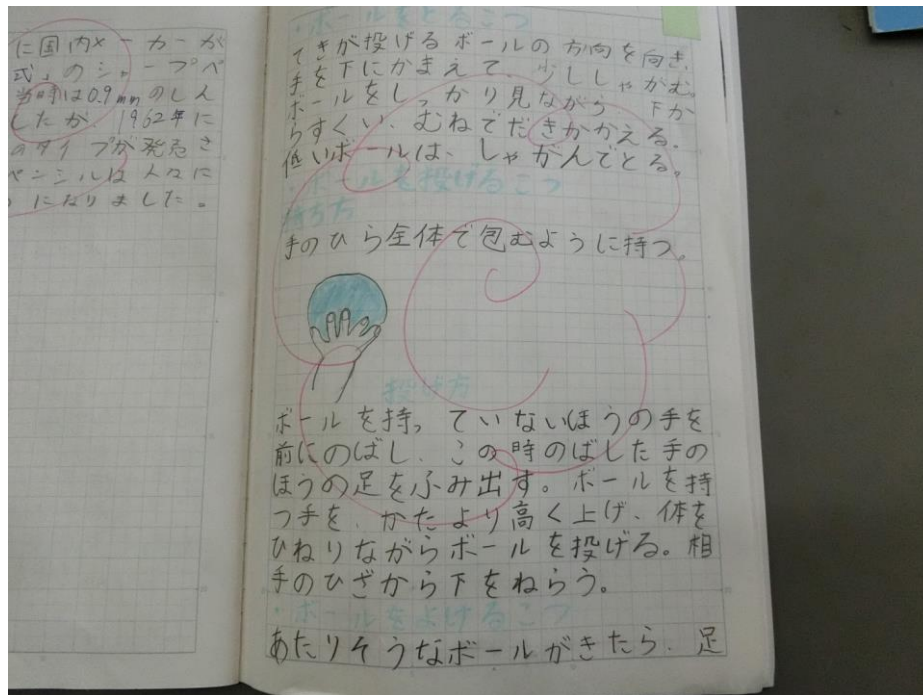 に国内メーカーが
式」のシャープペ
当時は0.9mmのしん
したが、1962年に
のタイプが発売さ
ペンシルは人々に
になりました。
・ボールをとるこつ
てきが投げるボールの方向を向き、
手を下にかまえて、少ししゃがむ。
ボールをしっかり見ながら、下か
らすくい、むねでだきかかえる。
低いボールは、しゃがんでとる。
・ボールを投げるこつ
持ち方
手のひら全体で包むように持つ。
投げ方
ボールを持っていないほうの手を
前にのばし、この時のばした手の
ほうの足をふみ出す。ボールを持
つ手を、かたより高く上げ、体を
ひねりながらボールを投げる。相
手のひざから下をねらう。
・ボールをよけるこつ
あたりそうなボールがきたら、足